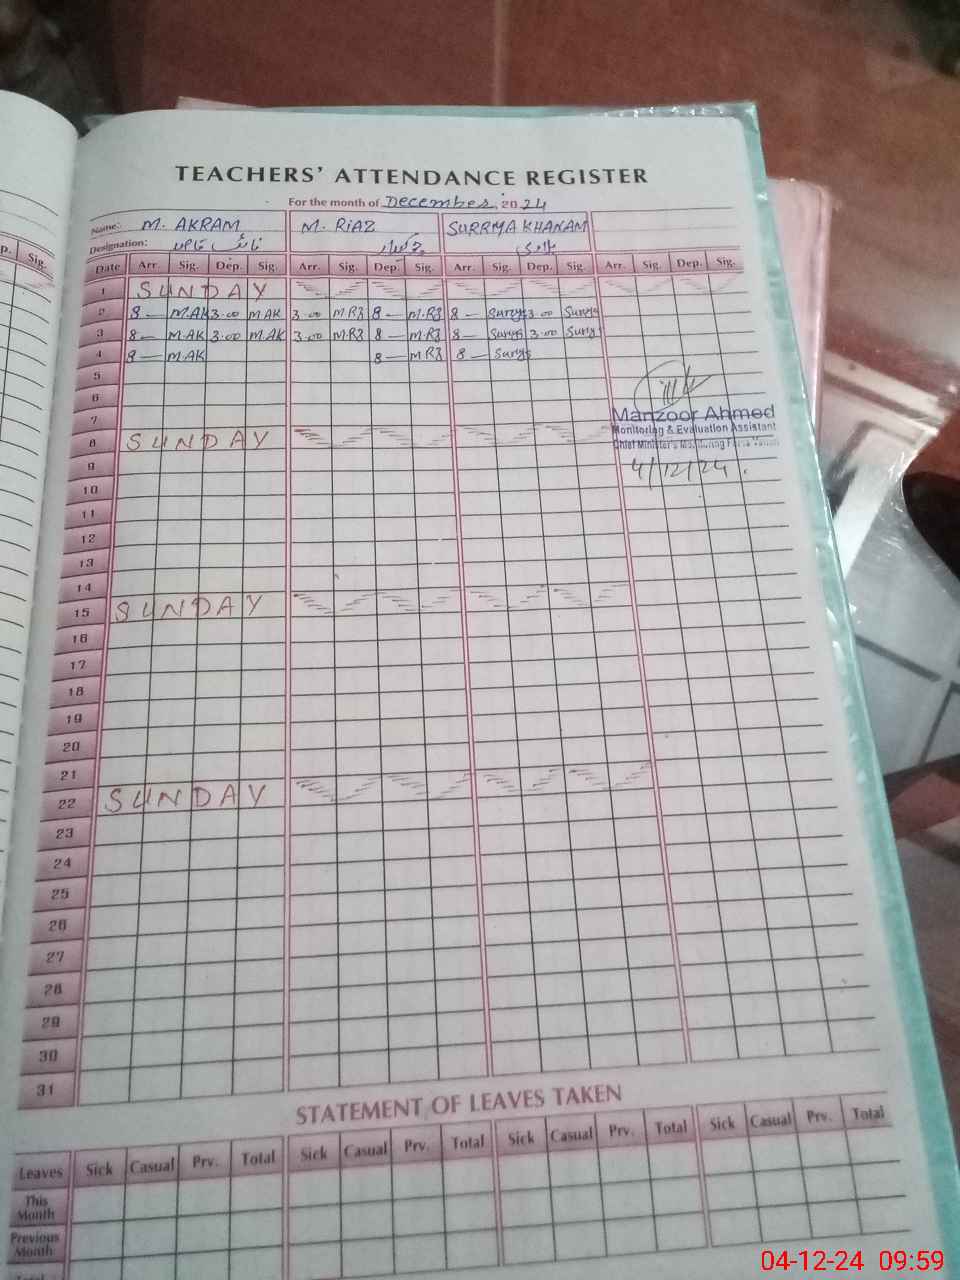 TEACHERS' ATTENDANCE REGISTER
For the month of December. 2024
Name: M. AKRAM M. RiAZ SURRYA KHANAM
Designation: نائب قاصد چوکیدار
p. Sig.
Date Arr. Sig. Dep. Sig. Arr. Sig. Dep. Sig. Arr. Sig. Dep. Sig. Arr. Sig. Dep. Sig.
1 SUNDAY
2 8 — M.AK 3.00 M AK 3.00 M RZ 8 — M.RZ 8 — Surys 3.00 Surys
3 8 — M.AK 3.00 M.AK 3.00 M.RZ 8 — M.RZ 8 — Surys 3.00 Surys
4 8 — M.AK 8 — M RZ 8 — Surys
5
6
7
Manzoor Ahmed
Monitoring & Evaluation Assistant
8 SUNDAY
Chief Minister's Monitoring Force
9
4/12/24.
10
11
12
13
14
15 SUNDAY
16
17
18
19
20
21
22 SUNDAY
23
24
25
26
27
28
29
30
31
STATEMENT OF LEAVES TAKEN
Leaves Sick Casual Prv. Total Sick Casual Prv. Total Sick Casual Prv. Total Sick Casual Prv. Total
This Month
Previous Month
Total
04-12-24 09:59